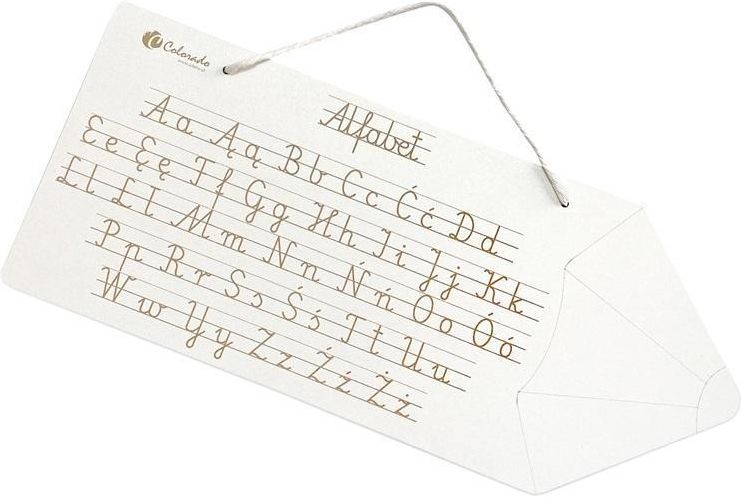 Colorado
Alfabet
Aa Ąą Bb Cc Ćć Dd
Ee Ęę Ff Gg Hh Ii Jj Kk
Ll Łł Mm Nn Ńń Oo Óó
Pp Rr Ss Śś Tt Uu
Ww Yy Zz Źź Żż